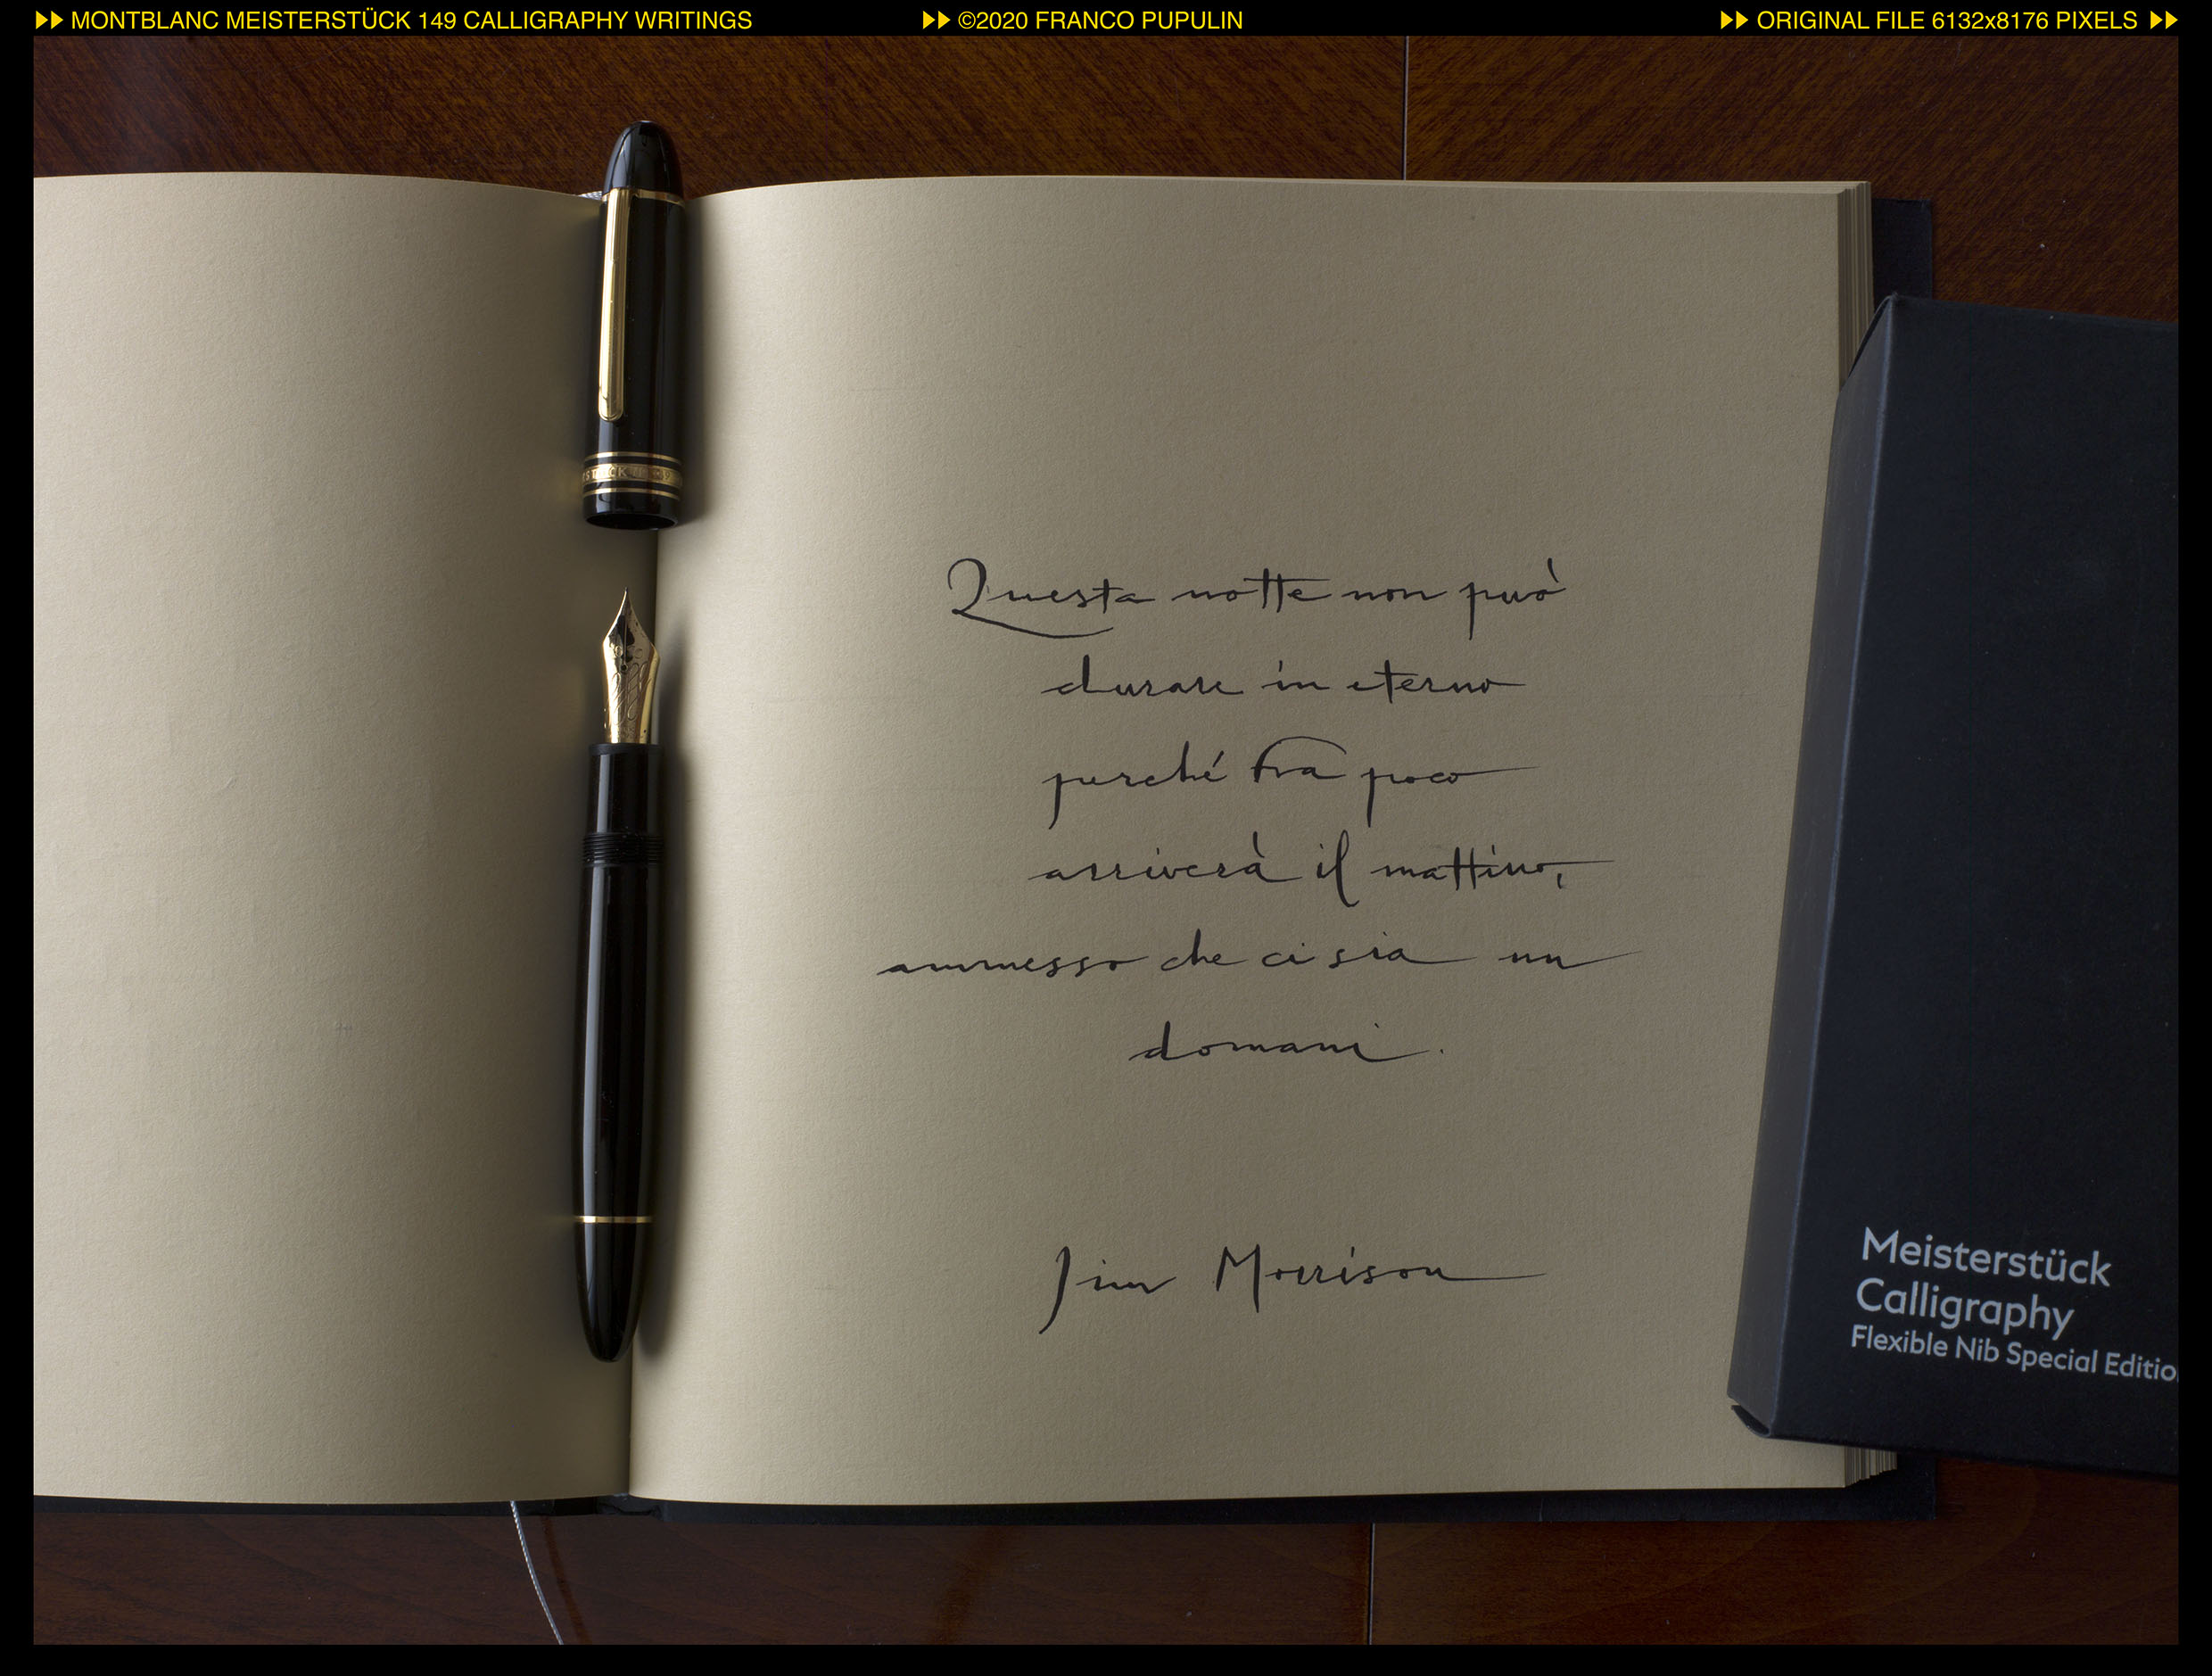 MONTBLANC MEISTERSTÜCK 149 CALLIGRAPHY WRITINGS
©2020 FRANCO PUPULIN
ORIGINAL FILE 6132x8176 PIXELS
Questa notte non può
durare in eterno
perché fra poco
arriverà il mattino,
ammesso che ci sia un
domani.
Jim Morrison
Meisterstück
Calligraphy
Flexible Nib Special Editio